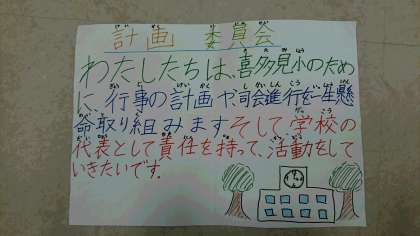 計画 委員会
わたしたちは、喜多見小のため
に、行事の計画や、司会進行を一生懸
命取り組みます。そして、学校の
代表として責任を持って、活動をして
いきたいです。